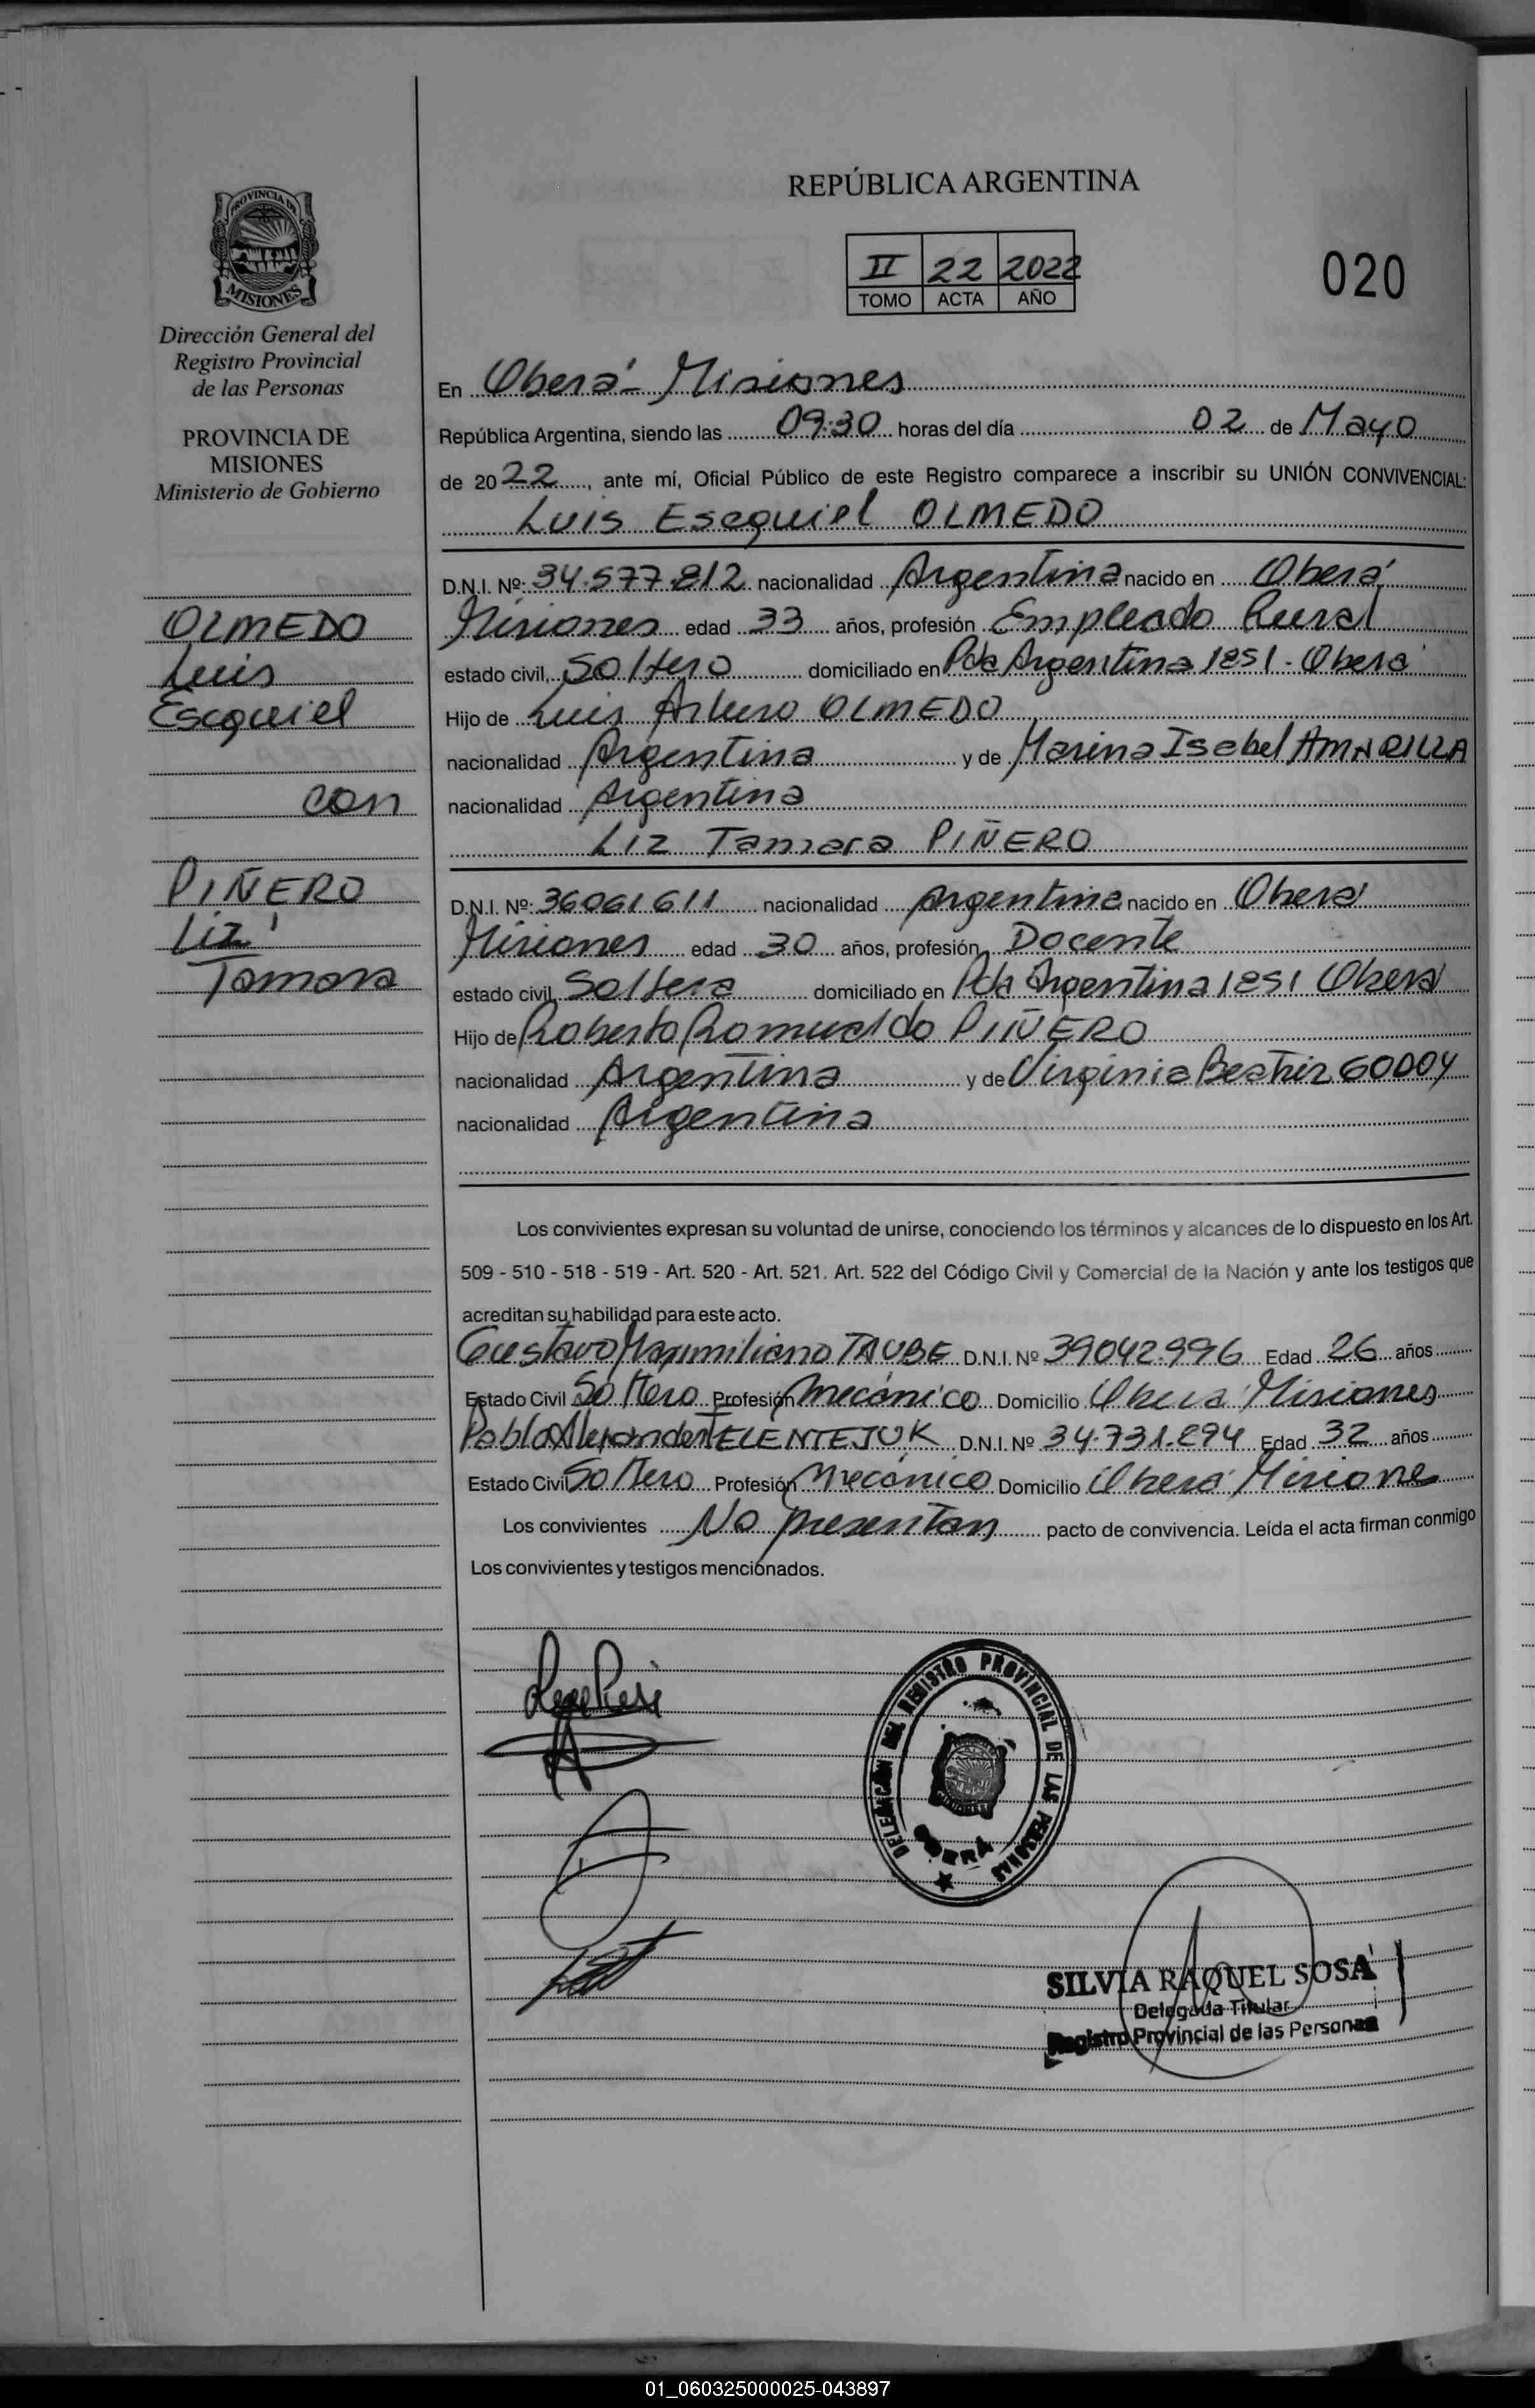 REPÚBLICA ARGENTINA
II 22 2022
TOMO ACTA AÑO
020
PROVINCIA DE
MISIONES
Dirección General del
Registro Provincial
de las Personas
PROVINCIA DE
MISIONES
Ministerio de Gobierno
OLMEDO
Luis
Esequiel
con
PIÑERO
Liz
Tamara
En Oberá - Misiones
República Argentina, siendo las 09:30 horas del día 02 de Mayo
de 2022, ante mí, Oficial Público de este Registro comparece a inscribir su UNIÓN CONVIVENCIAL:
Luis Esequiel OLMEDO
D.N.I. Nº: 34.577.812 nacionalidad Argentina nacido en Oberá
Misiones edad 33 años, profesión Empleado Rural
estado civil, Soltero domiciliado en Pda Argentina 1851 - Oberá
Hijo de Luis Arturo OLMEDO
nacionalidad Argentina y de Marina Isabel AMARILLA
nacionalidad Argentina
Liz Tamara PIÑERO
D.N.I. Nº: 36061611 nacionalidad Argentina nacido en Oberá
Misiones edad 30 años, profesión Docente
estado civil Soltera domiciliado en Pda Argentina 1851 Oberá
Hijo de Roberto Romualdo PIÑERO
nacionalidad Argentina y de Virginia Beatriz GODOY
nacionalidad Argentina
Los convivientes expresan su voluntad de unirse, conociendo los términos y alcances de lo dispuesto en los Art.
509 - 510 - 518 - 519 - Art. 520 - Art. 521. Art. 522 del Código Civil y Comercial de la Nación y ante los testigos que
acreditan su habilidad para este acto.
Gustavo Maximiliano TAUBE D.N.I. Nº 39042.996 Edad 26 años
Estado Civil Soltero Profesión Mecánico Domicilio Oberá Misiones
Pablo Alejandro TELENTEJUK D.N.I. Nº 34.731.894 Edad 32 años
Estado Civil Soltero Profesión Mecánico Domicilio Oberá Misiones
Los convivientes No presentan pacto de convivencia. Leída el acta firman conmigo
Los convivientes y testigos mencionados.
DELEGACIÓN DEL REGISTRO PROVINCIAL DE LAS PERSONAS
OBERÁ
SILVIA RAQUEL SOSA
Delegada Titular
Registro Provincial de las Personas
01_060325000025-043897